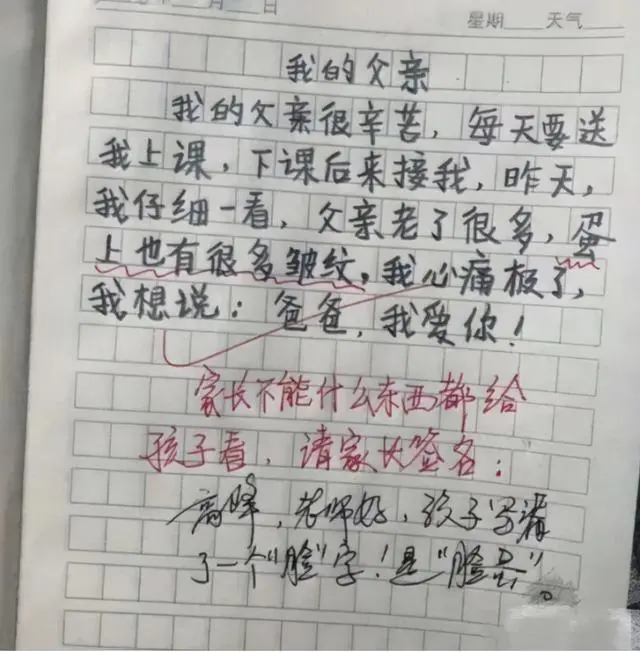 日
星期 天气
我的父亲
我的父亲很辛苦,每天要送
我上课,下课后来接我,昨天,
我仔细一看,父亲老了很多,蛋
上也有很多皱纹,我心痛极了,
我想说:爸爸,我爱你!
家长不能什么东西都给
孩子看,请家长签名:
高峰,老师好,孩子写错
了一个“脸”字!是“脸蛋”。